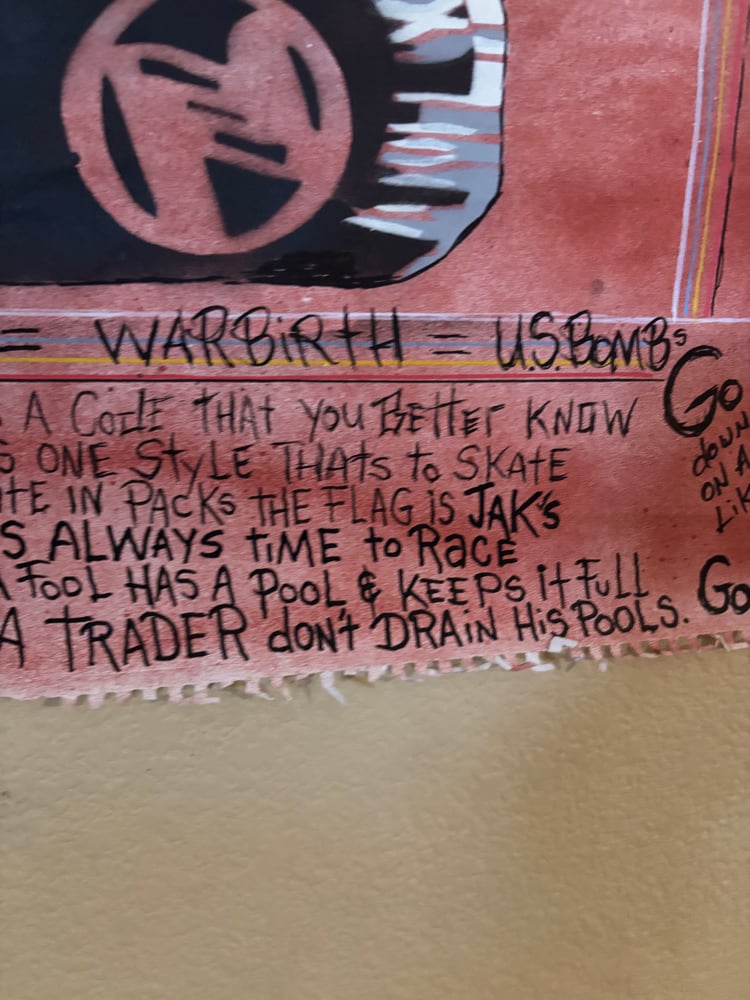 = WARBiRtH = U.S.BOMBs
A CodE THAt YOU BEttEr KNOW
ONE StyLE THAts to SKAtE
IN PACKs tHE FLAG iS JAK's
S ALWAYS tiME to RacE
FOOL HAS A POOL & KEEPS it FuLL
A TRADER don't DRAiN HiS POOLS.
Go
dowN
ON A
Go